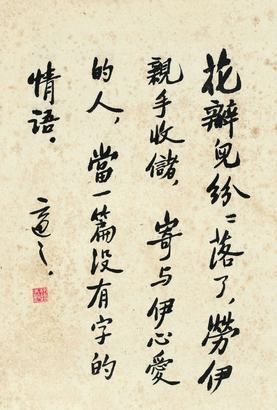 花瓣兒紛〻落了，勞伊
親手收儲，寄与伊心愛
的人，當一篇没有字的
情語。
適之。